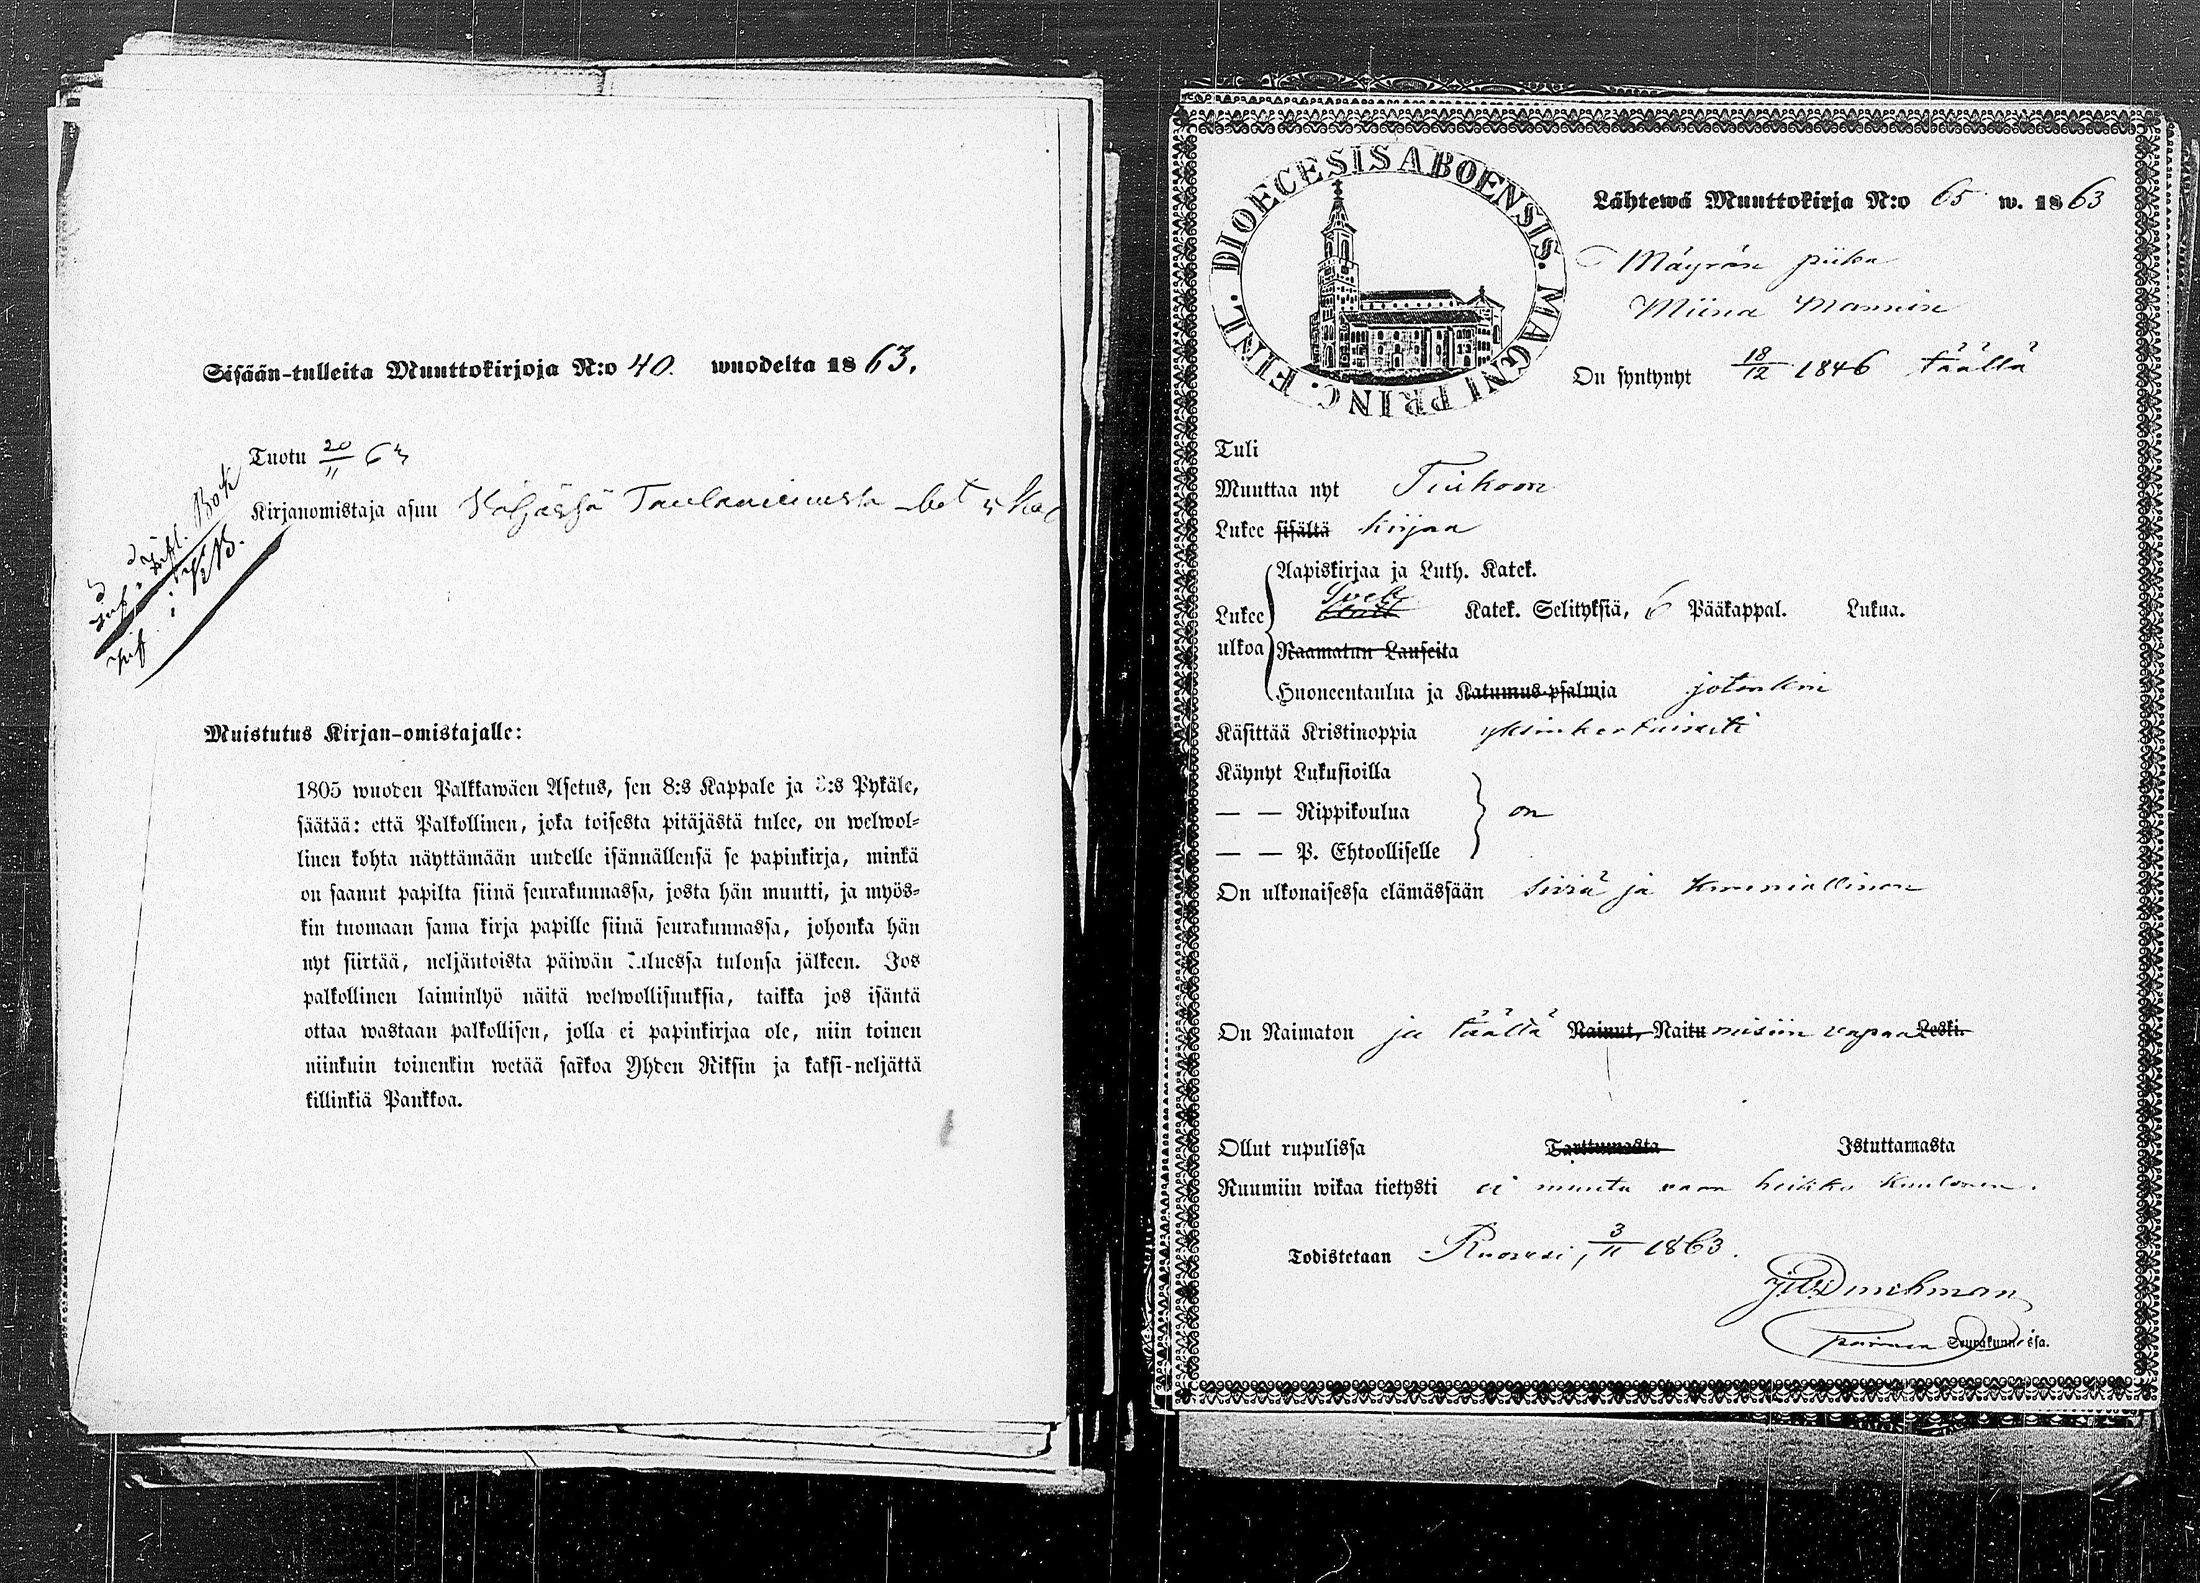 Sisään-tulleita Muuttokirjoja N:o 40. wuodelta 1863.
Tuotu 20/11 63
Kirjanomistaja asuu
Bok
i KB.
Muistutus Kirjan-omistajalle:
1805 wuoden Palkkawäen Asetus, sen 8:s Kappale ja :s Pykäle,
säätää: että Palkollinen, joka toisesta pitäjästä tulee, on welwol-
linen kohta näyttämään uudelle isännällensä se papinkirja, minkä
on saanut papilta siinä seurakunnassa, josta hän muutti, ja myös-
kin tuomaan sama kirja papille siinä seurakunnassa, johonka hän
nyt siirtää, neljäntoista päiwän kuluessa tulonsa jälkeen. Jos
palkollinen laiminlyö näitä welwollisuuksia, taikka jos isäntä
ottaa wastaan palkollisen, jolla ei papinkirjaa ole, niin toinen
niinkuin toinenkin wetää sakkoa Yhden Riksin ja kaksi-neljättä
killinkiä Pankkoa.
DIOECESIS ABOENSIS. MAGNI PRINC. FINL.
Lähtewä Muuttokirja N:o 65 w. 1863
Mäyrän piika
Miina Mannin
On syntynyt 18/12 1846 täällä
Tuli
Muuttaa nyt
Lukee sisältä kirjaa
Aapiskirjaa ja Luth. Katek.
Lukee Sveb Katek. Selityksiä, 6 Pääkappal. Lukua.
ulkoa Raamatun Lauseita
Huoneentaulua ja Katumus-psalmia jotenkin
Käsittää Kristinoppia yksinkertaisesti
Käynyt Lukusioilla
— — Rippikoulua on
— — P. Ehtoolliselle
On ulkonaisessa elämässään siviä ja kunniallinen
On Naimaton ja täällä Nainut, Naitu misiin vapaa Leski.
Ollut rupulissa Tarttumasta Istuttamasta
Ruumiin wikaa tietysti ei muuta vaan heikko kuulonen.
Todistetaan Ruovesi, 3/11 1863.
Seurakunnassa.